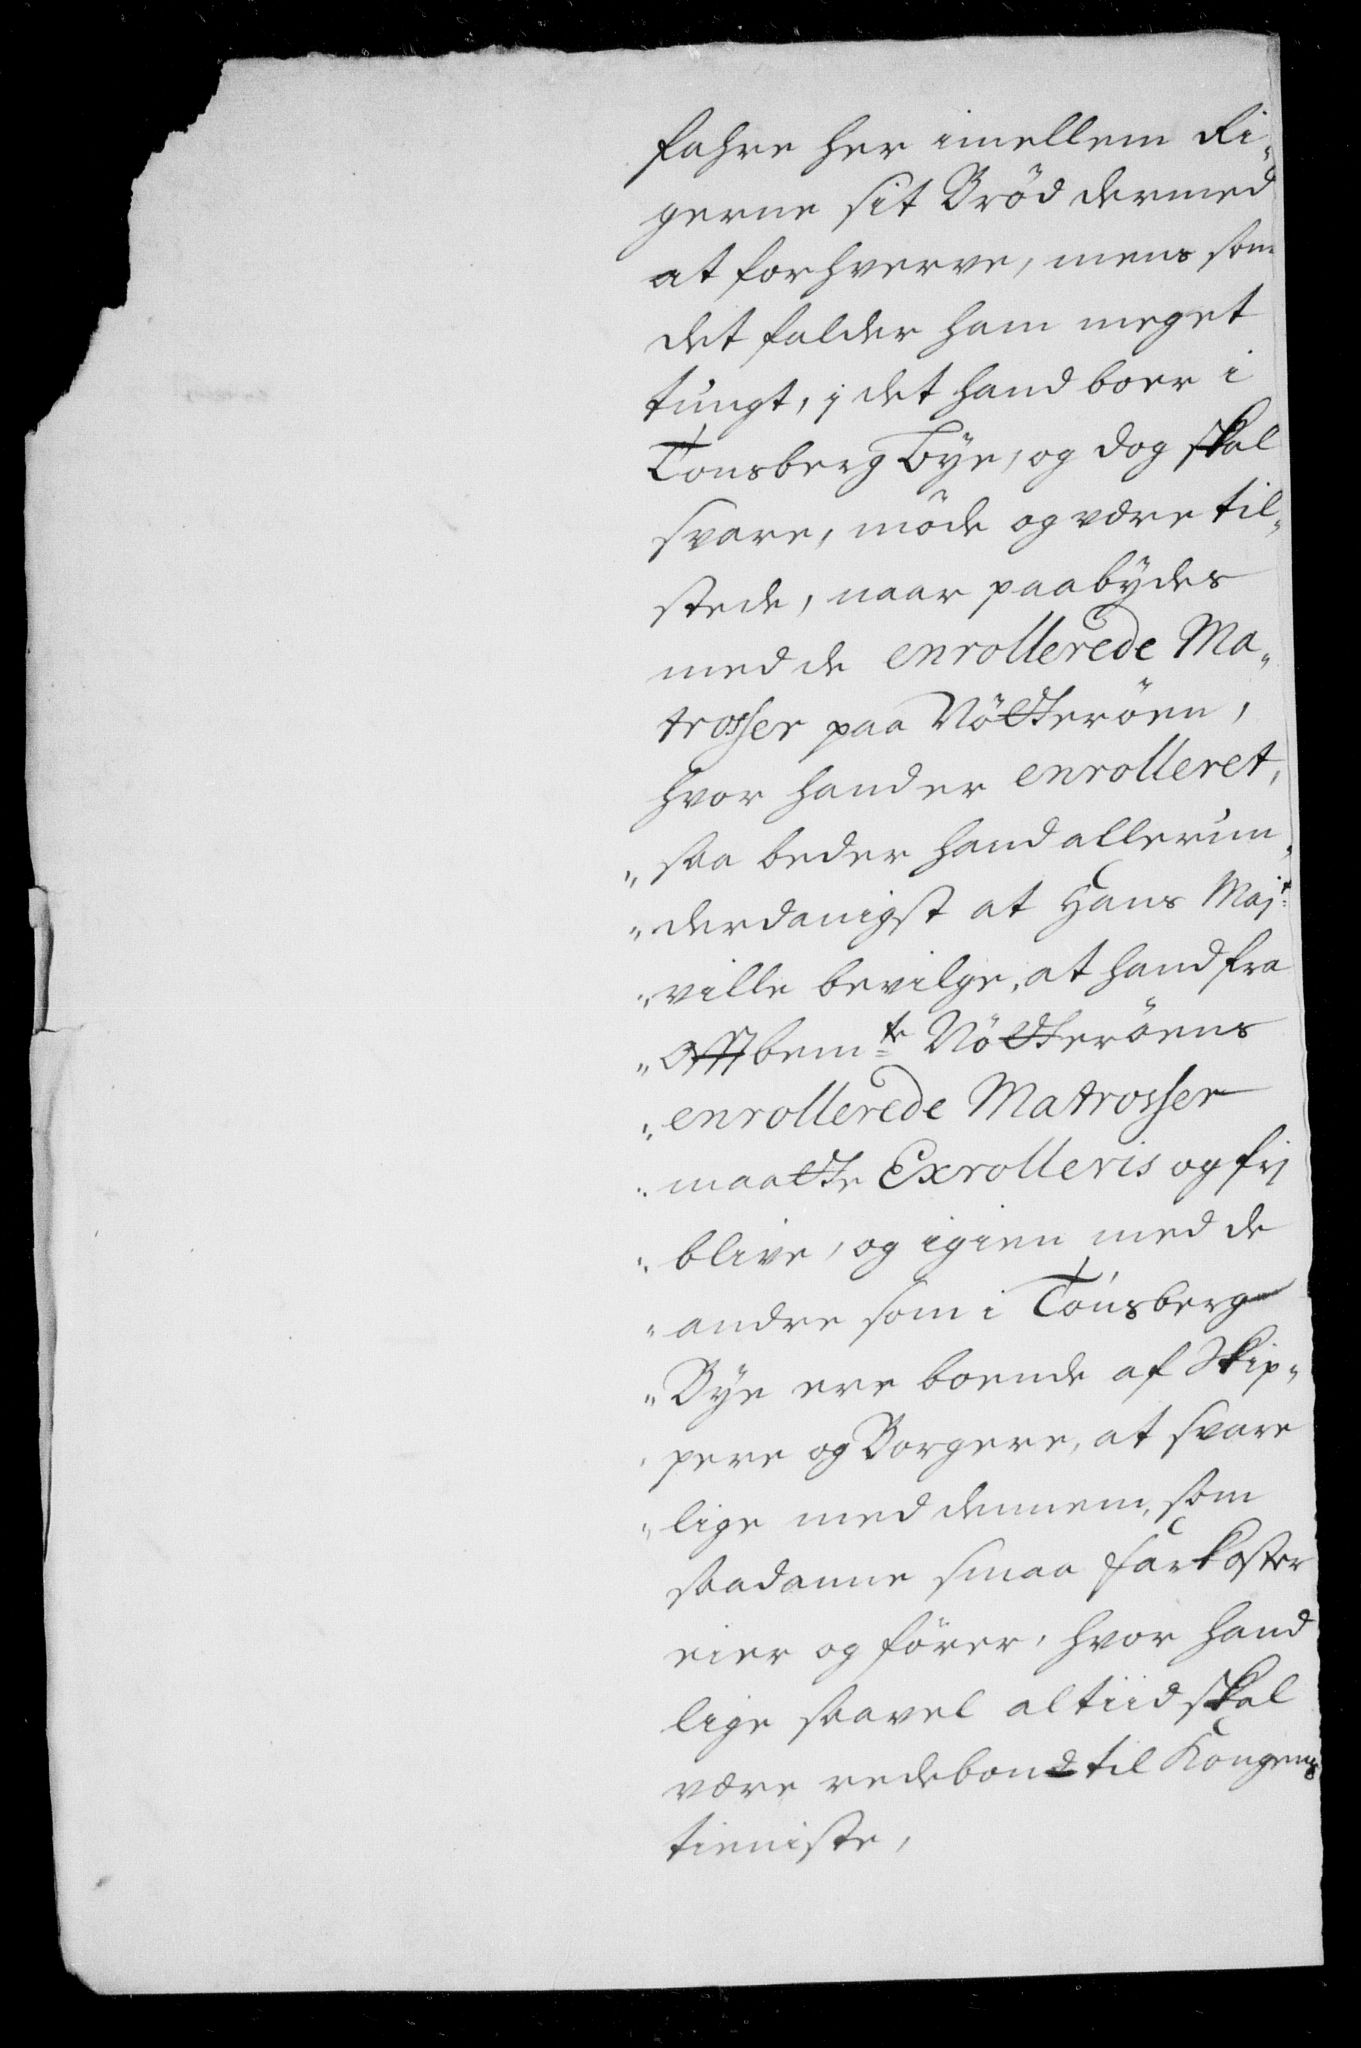 fahre her imellem Ri„
gerne sit Brød dermed
at forhverve, mens som
det falder ham meget
tungt, i det hand boer i
Tonsberg Bye, og dog skal
svare, møde og være til„
stede, naar paabydes
med de enrollerede Ma„
trosser paa Nötterøen,
hvor hand er enrolleret,
„ saa beder hand allerun„
„ derdanigst at Hans Majt:
„ ville bevilge, at hand fra
„ Offbemte Nötterøens
„ enrollerede Matrosser
„ maatte Exrolleris og frj
„ blive, og igien med de
„ andre som i Tónsberg
„ Bye ere boende af Skip„
„ pere og Borgere, at svare
„ lige med dennem, som
saadanne smaa Farkoster
eier og fører, hvor hand
lige saavel altiid skal
være redebond til Kongens
tieniste,